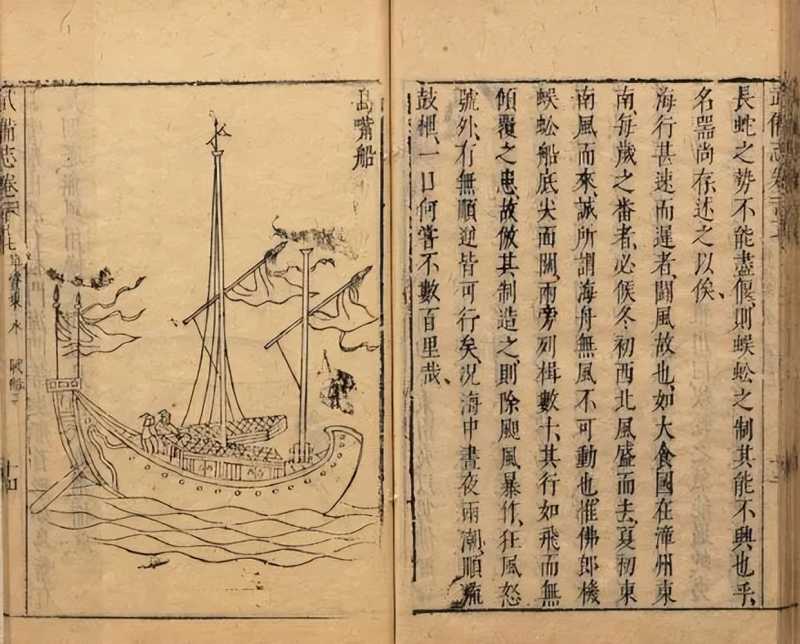 武備志卷
長蛇之勢不能盡偃、則蜈蚣之制其能不興也乎、
名器尚存、述之以俟、
海行甚速而遲者、鬭風故也、如大食國在漳州東
南、每歲之番者、必候冬初西北風盛而去、夏初東
南風而來、誠所謂海舟無風不可動也、惟佛郎機
蜈蚣船底尖面闊、兩旁列楫數十、其行如飛而無
傾覆之患、故倣其制造之、則除颶風暴作、狂風怒
號外、有無順逆皆可行矣、況海中晝夜兩潮、順流
鼓枻、一日何嘗不數百里哉、
鳥嘴船
武備志卷 軍資乘 水 戰船 十四